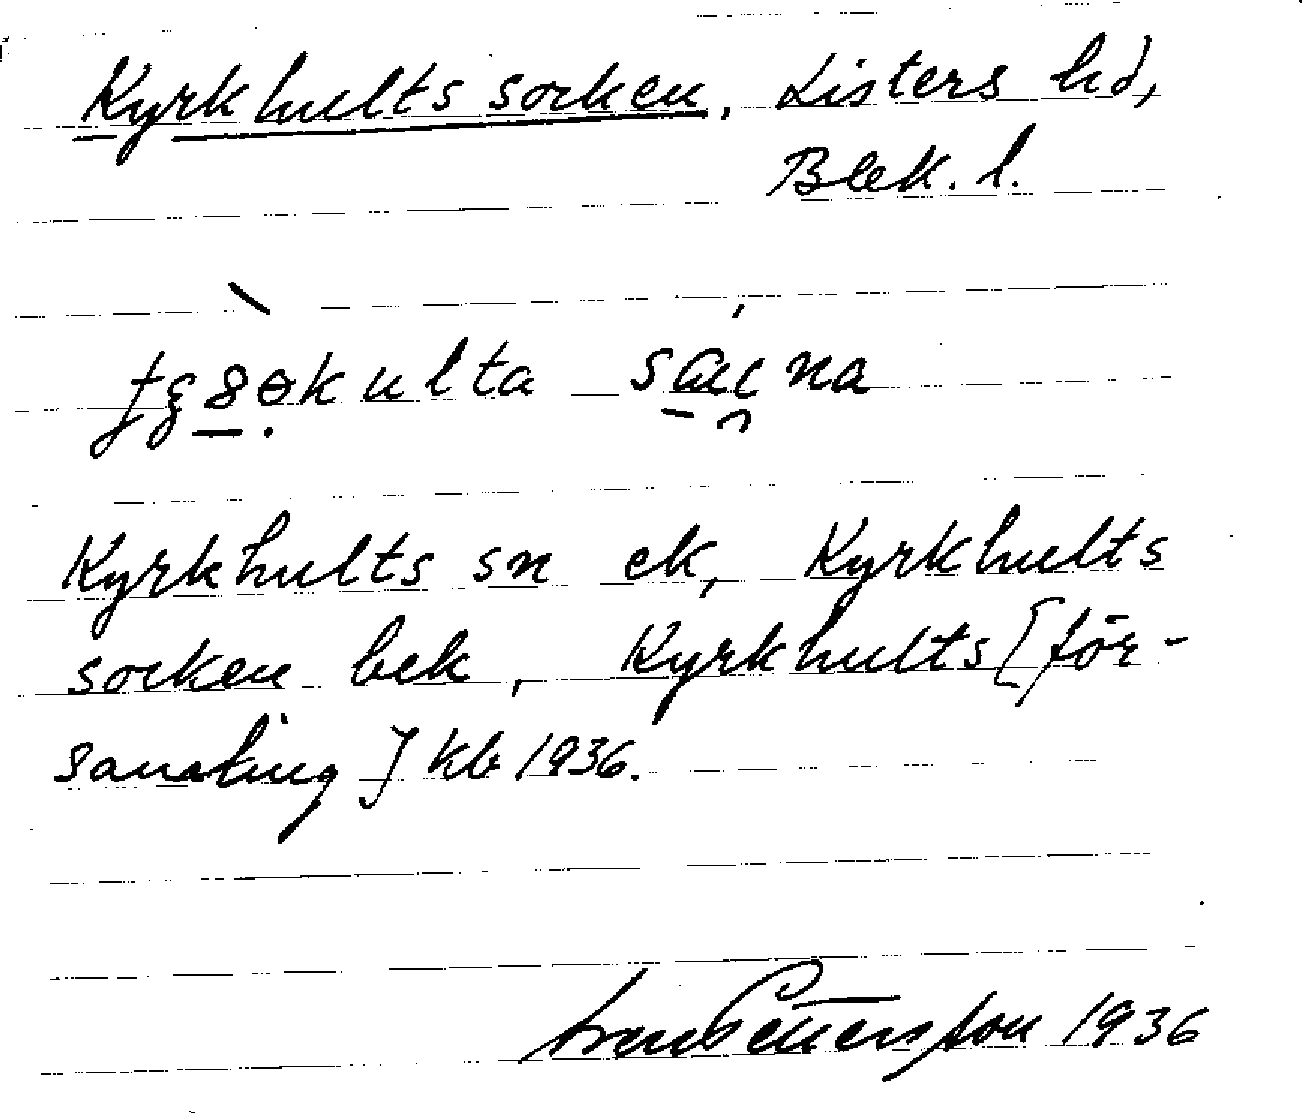 Kyrkhults socken, Listers hd,
Blek. l.
Kyrkhults sn ek, Kyrkhults
socken bek, Kyrkhults [för-
samling] kb 1936.
1936